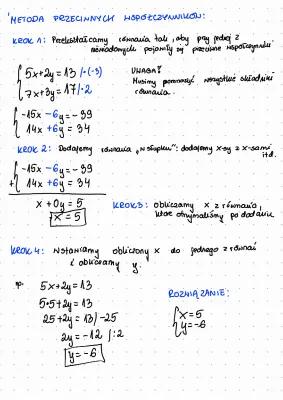 "METODA PRZECIWNYCH WSPÓŁCZYNNIKÓW:
KROK 1: Przekształcamy równania tak, aby przy jednej z
niewiadomych pojawiły się przeciwne współczynniki
5x+2y=13 /·(-3)
7x+3y=17 /·2
UWAGA!
Musimy pomnożyć wszystkie składniki
równania.
-15x-6y=-39
14x+6y=34
KROK 2: Dodajemy równania „w słupku": dodajemy x-sy z x-sami
itd.
-15x-6y=-39
+ 14x+6y=34
x+0y=5
x=5
KROK 3: obliczamy x z równania,
które otrzymaliśmy po dodaniu
KROK 4: Wstawiamy obliczony x do jednego z równań
i obliczamy y.
np. 5x+2y=13
5·5+2y=13
25+2y=13 /-25
2y=-12 /:2
y=-6
ROZWIĄZANIE:
x=5
y=-6